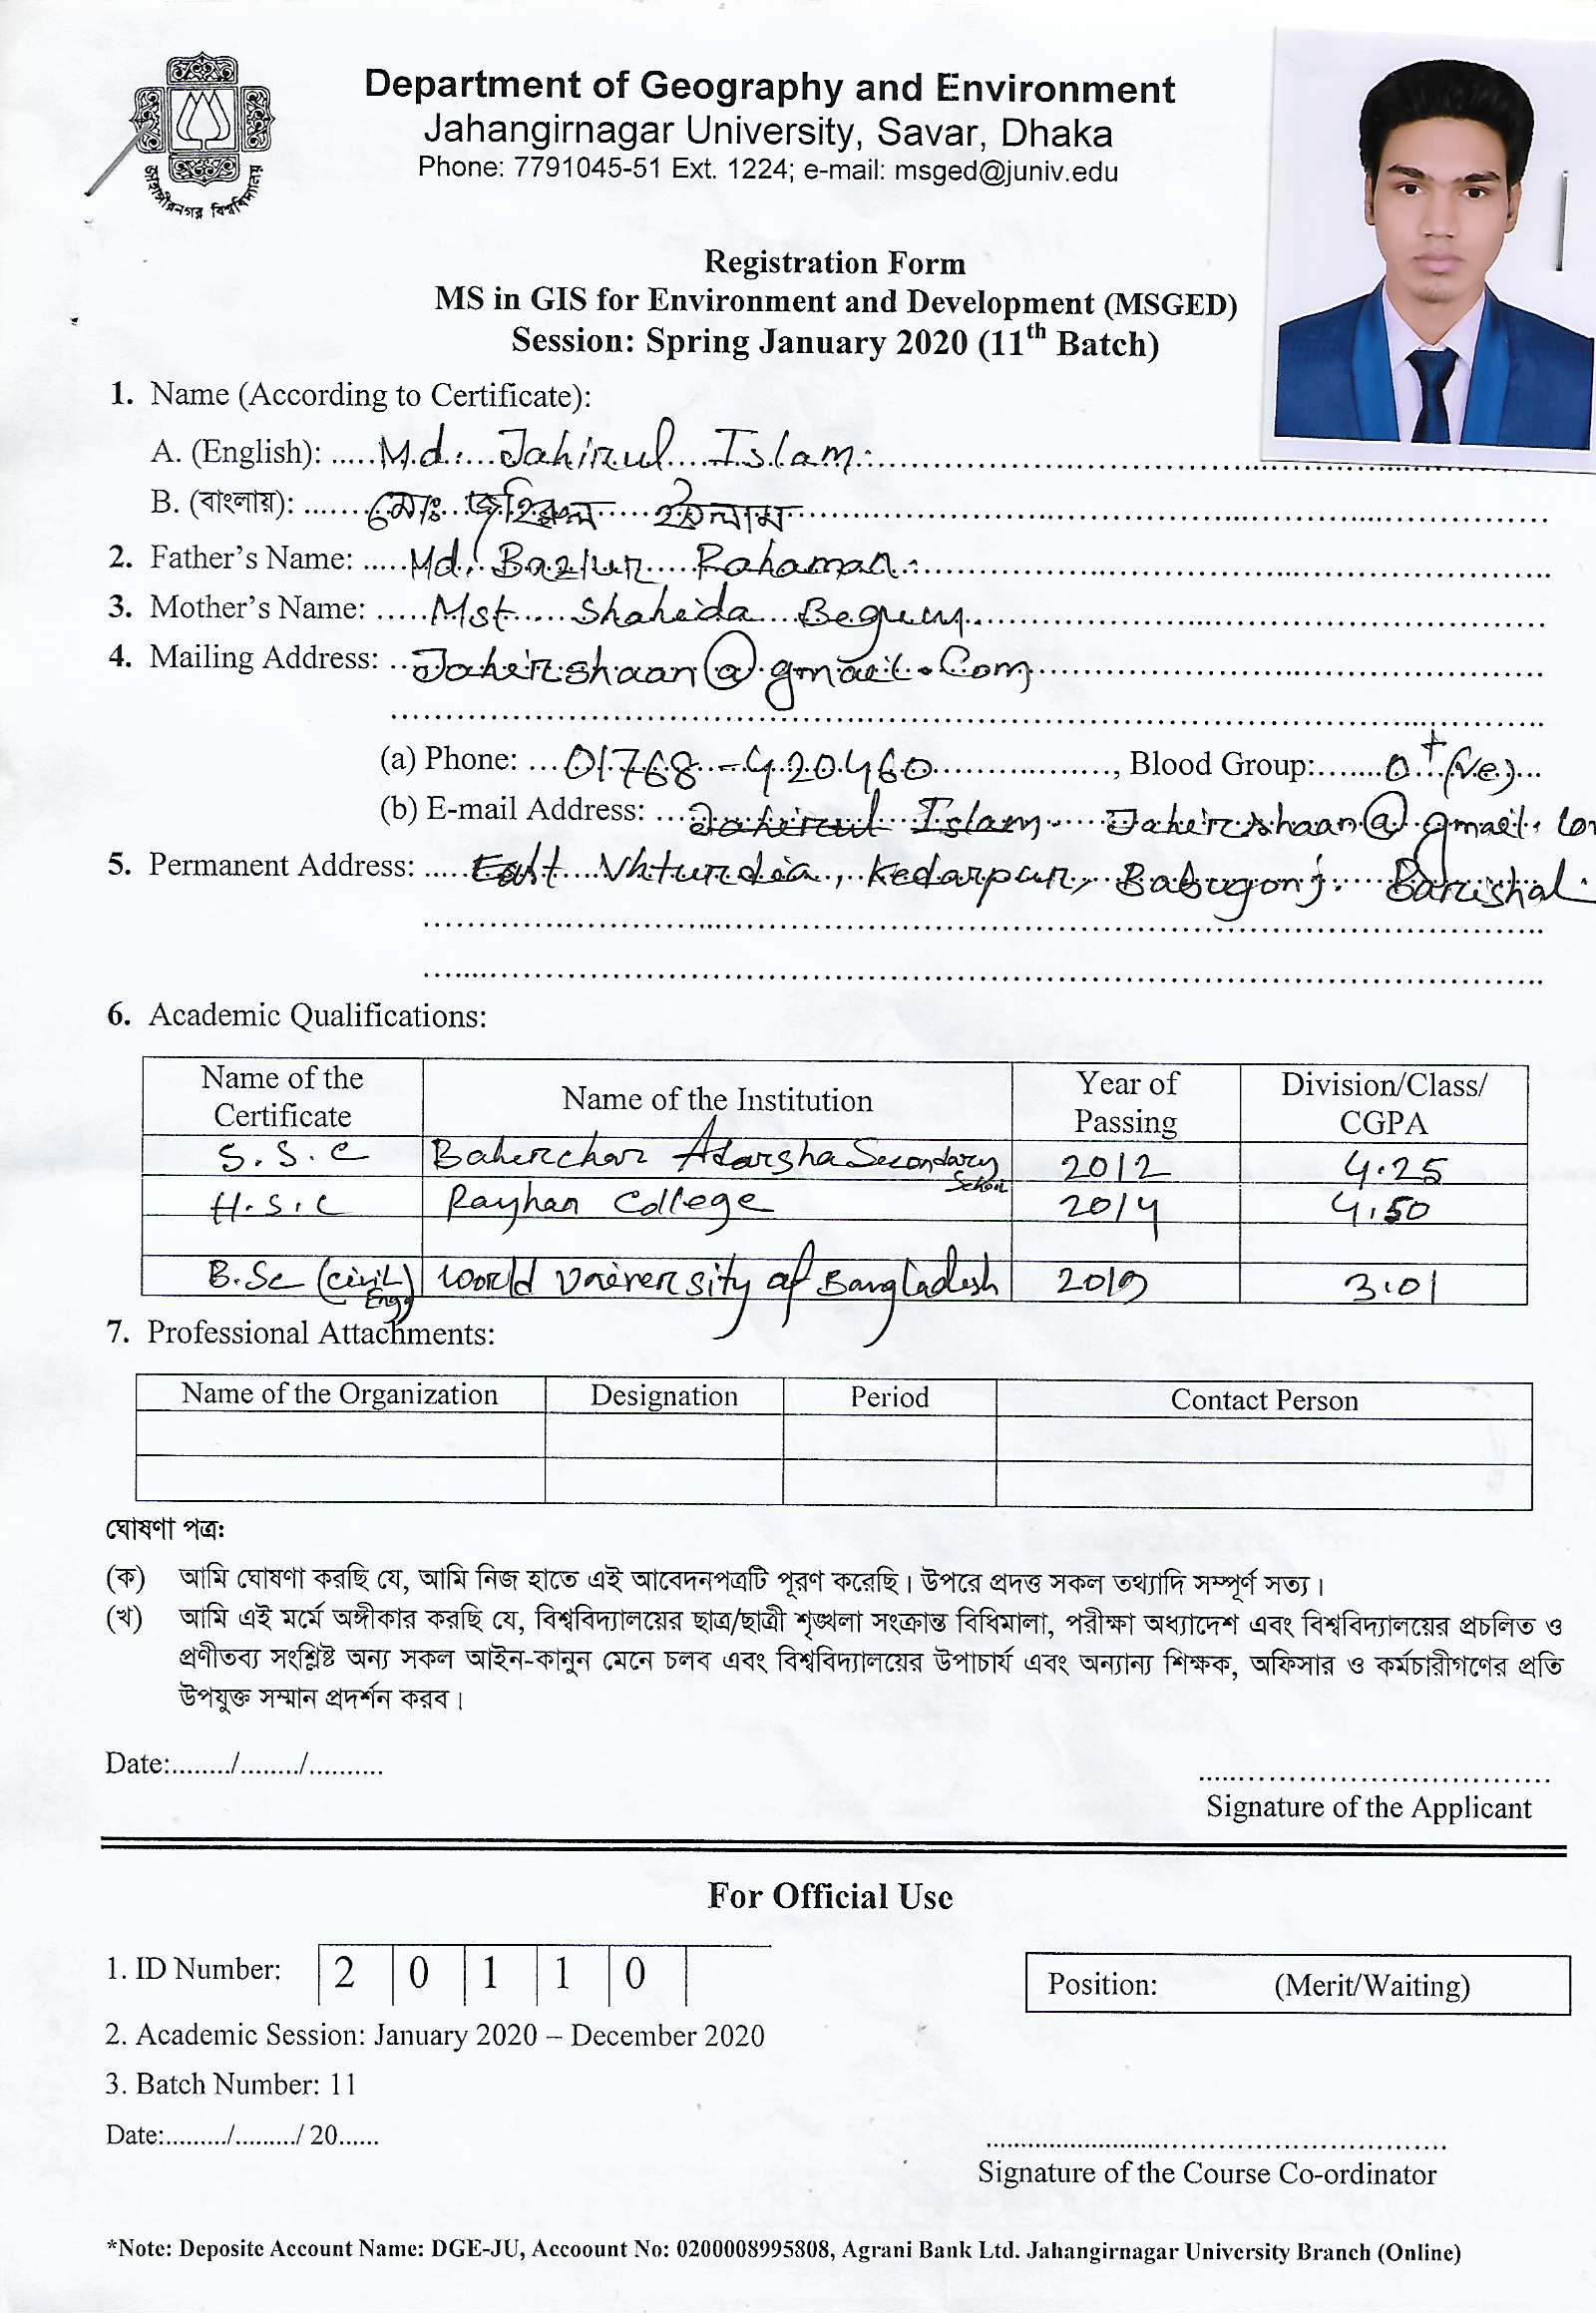 জাহাঙ্গীরনগর বিশ্ববিদ্যালয়
Department of Geography and Environment
Jahangirnagar University, Savar, Dhaka
Phone: 7791045-51 Ext. 1224; e-mail: msged@juniv.edu
Registration Form
MS in GIS for Environment and Development (MSGED)
Session: Spring January 2020 (11th Batch)
1. Name (According to Certificate):
A. (English): Md. Jahirul Islam.
B. (বাংলায়): মোঃ জহিরুল ইসলাম
2. Father's Name: Md. Bazlur Rahaman.
3. Mother's Name: Mst Shaheda Begum.
4. Mailing Address: Jaheirshaan@gmail.Com
(a) Phone: 01768-420460, Blood Group: O+(ve)
(b) E-mail Address: Jahirul Islam Jaheirshaan@gmail.
5. Permanent Address: East Kedarpur, Babugonj. Barishal.
6. Academic Qualifications:
Name of the Certificate Name of the Institution Year of Passing Division/Class/ CGPA
S.S.C Baherchar Adarsha Secondary School 2012 4.25
H.S.C Rayhan College 2014 4.50
B.Sc (Civil) Engg World University of Bangladesh 2019 3.01
7. Professional Attachments:
Name of the Organization Designation Period Contact Person
ঘোষণা পত্র:
(ক) আমি ঘোষণা করছি যে, আমি নিজ হাতে এই আবেদনপত্রটি পূরণ করেছি। উপরে প্রদত্ত সকল তথ্যাদি সম্পূর্ণ সত্য।
(খ) আমি এই মর্মে অঙ্গীকার করছি যে, বিশ্ববিদ্যালয়ের ছাত্র/ছাত্রী শৃঙ্খলা সংক্রান্ত বিধিমালা, পরীক্ষা অধ্যাদেশ এবং বিশ্ববিদ্যালয়ের প্রচলিত ও
প্রণীতব্য সংশ্লিষ্ট অন্য সকল আইন-কানুন মেনে চলব এবং বিশ্ববিদ্যালয়ের উপাচার্য এবং অন্যান্য শিক্ষক, অফিসার ও কর্মচারীগণের প্রতি
উপযুক্ত সম্মান প্রদর্শন করব।
Date:......../......../..........
Signature of the Applicant
For Official Use
1. ID Number: 2 0 1 1 0
Position: (Merit/Waiting)
2. Academic Session: January 2020 – December 2020
3. Batch Number: 11
Date:........./........./ 20......
Signature of the Course Co-ordinator
*Note: Deposite Account Name: DGE-JU, Accoount No: 0200008995808, Agrani Bank Ltd. Jahangirnagar University Branch (Online)